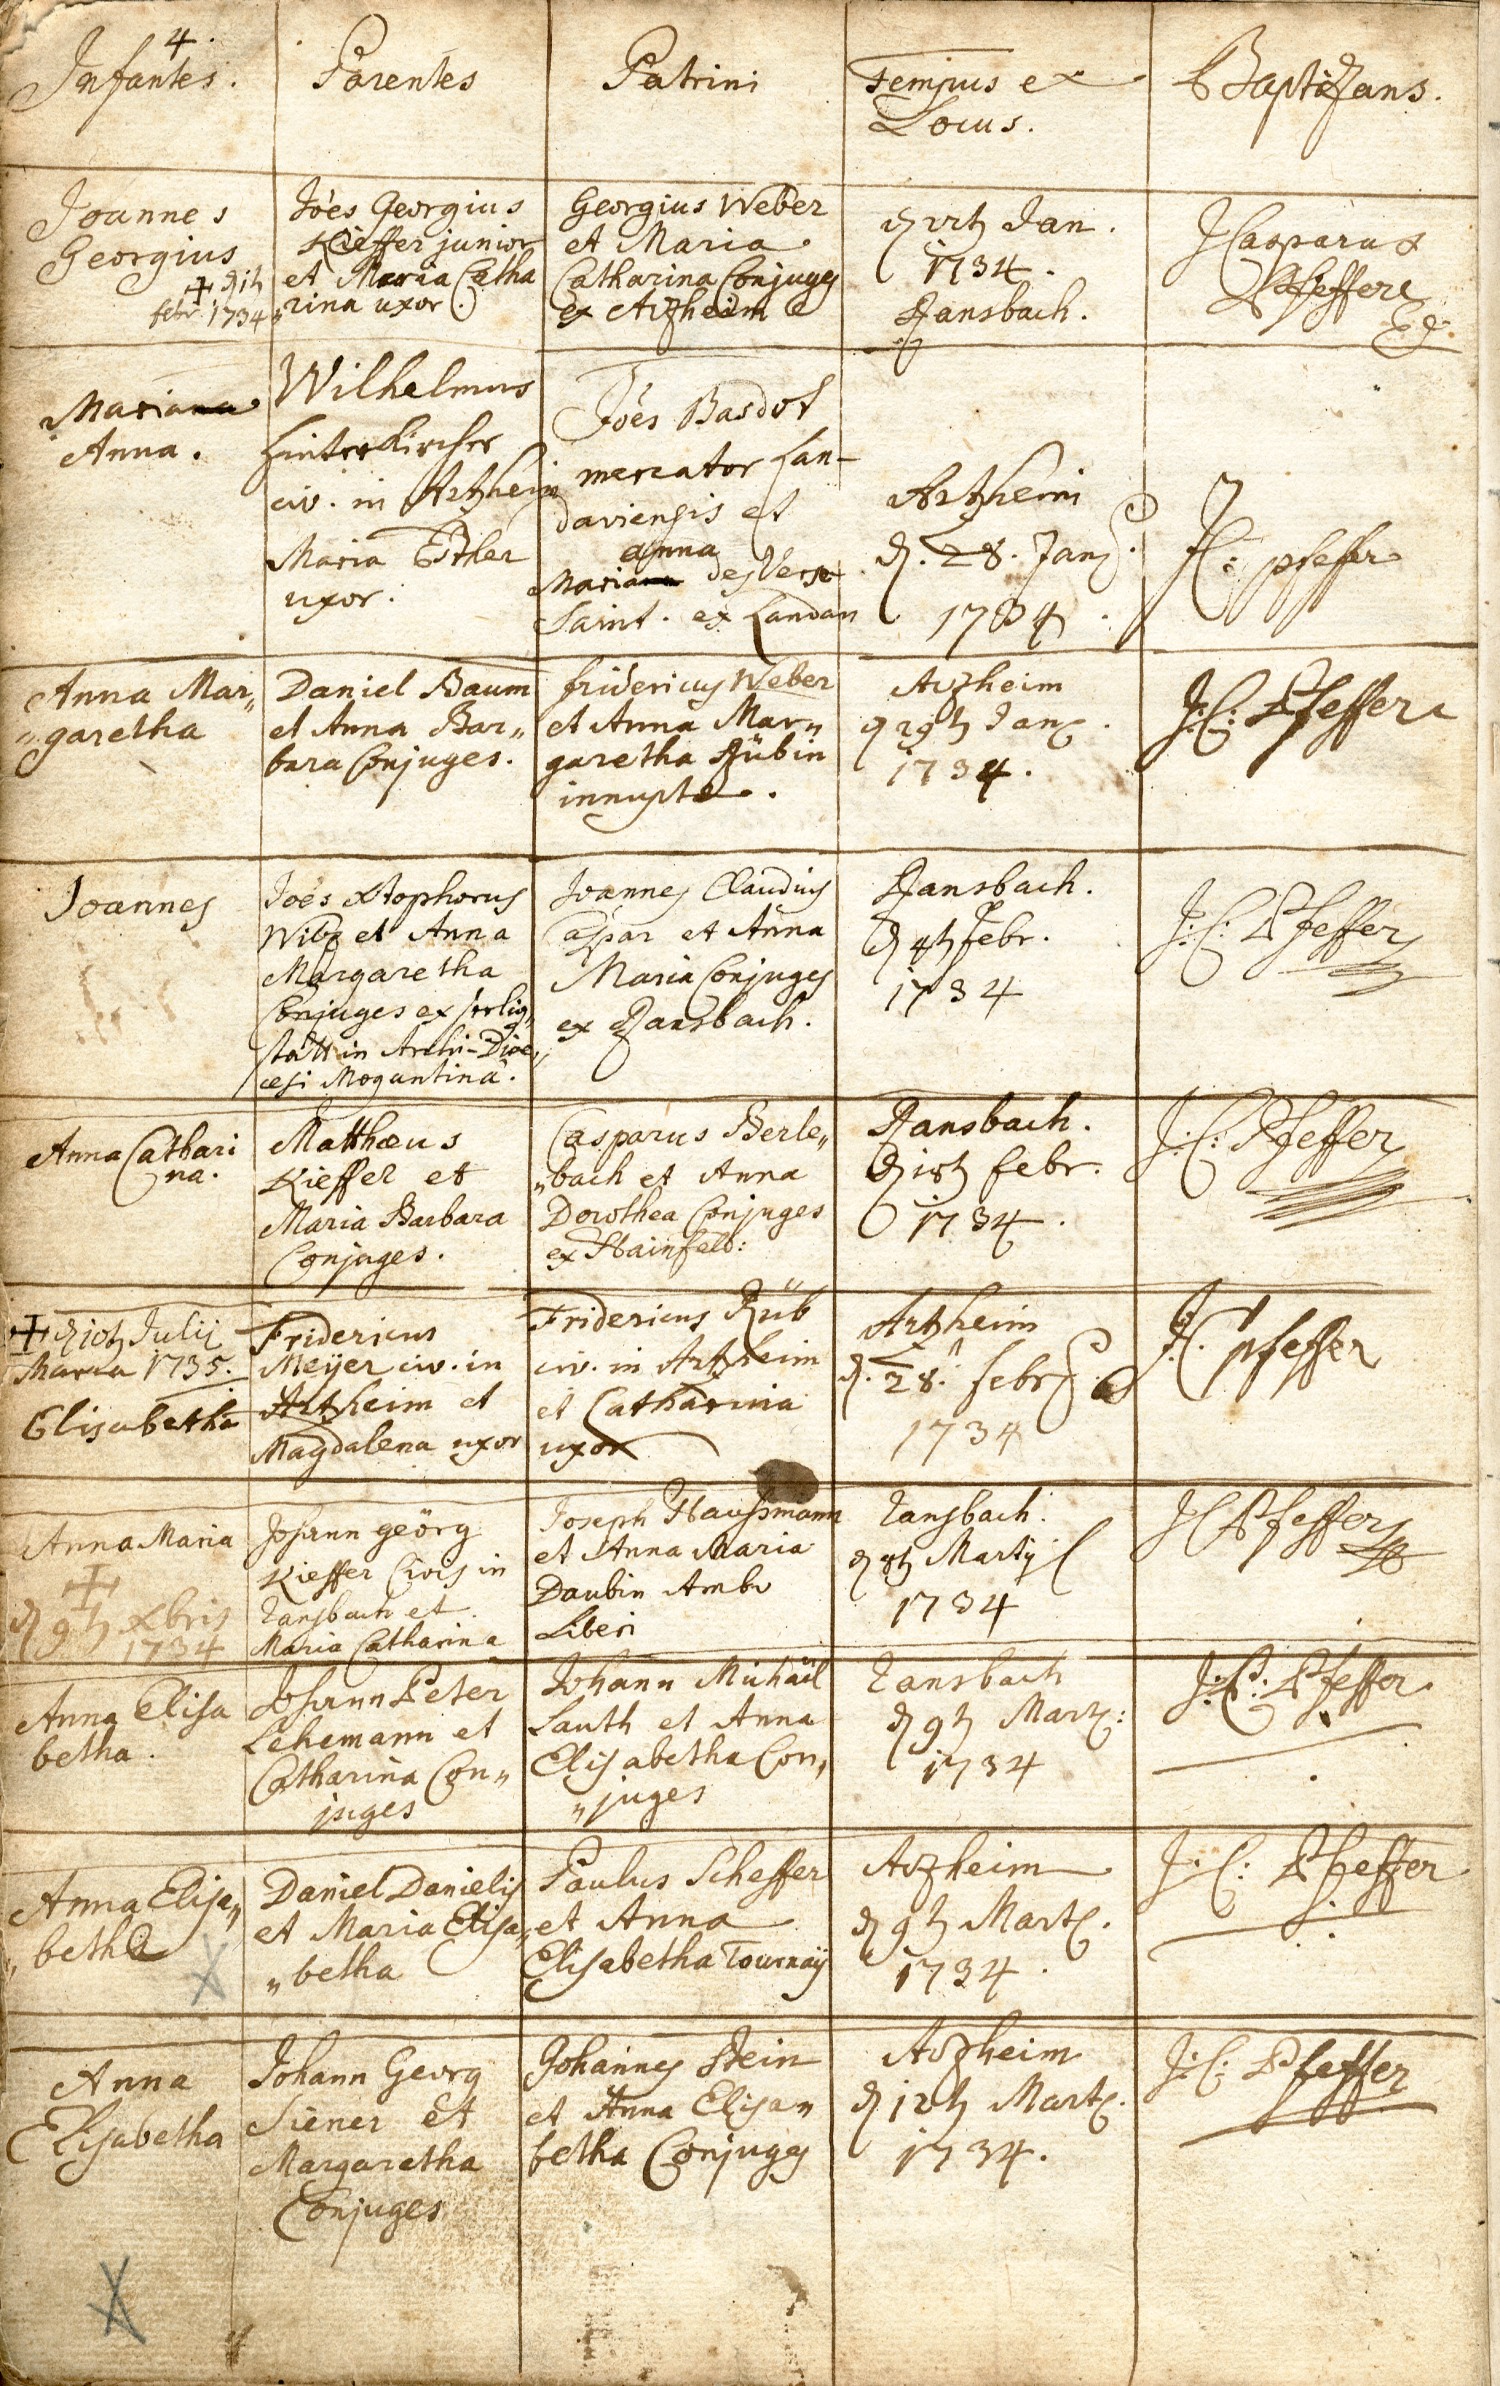 4.
Infantes.
Parentes
Patrini
Tempus et
Locus.
Baptizans.
Joannes
Georgius
febr. 1734
Joës Georgius
Kieffer junior
et Maria Catha
rina uxor
Georgius Weber
et Maria
Catharina Conjuges
ex Arzheim
Jan.
1734.
Ransbach.
JCasparus
Pfeffer
Mariana
Anna.
Wilhelmus
civ. in Artzheim
Maria Esther
uxor.
Joës Basdot
mercator Lan-
daviensis et
anna
Mariana
Saint. ex Landau
Artzheim
d. 28. Jan
1734
JC: pfeffer
Anna Mar„
„garetha
Daniel Baum
et Anna Bar„
bara Conjuges.
fridericus Weber
et Anna Mar„
garetha Rübin
innupta.
Arzheim
d 29t Jan
1734.
J:C: Pfeffer
Joannes
Joës Xtophorus
Wilz et Anna
Margaretha
Conjuges ex
statt in Archi-Dioe„
cesi Mogantina.
Joannes Claudius
Caspar et Anna
Maria Conjuges
ex Ransbach.
Ransbach.
d 4t febr.
1734
J:C: Pfeffer
Anna Cathari
na.
Matthæus
Kieffer et
Maria Barbara
Conjuges.
Casparus Berle„
„bach et Anna
Dorothea Conjuges
ex Hainfeld:
Ransbach.
d 18t febr.
1734.
J:C: Pfeffer
d 10t Julij
Maria 1735.
Elisabetha
Fridericus
Meÿer civ. in
Artzheim et
Magdalena uxor
Fridericus Rüb
civ. in Artzheim
et Catharina
uxor
Artzheim
d. 28. febr
1734
JC. pfeffer
Anna Maria
d 9t Xbris
1734
Johann geörg
Kieffer Civis in
Ransbach et
Maria Catharina
Joseph Haussmann
et Anna Maria
Daubin Ambo
Liberi
Ransbach.
d 8t Martij
1734
JC Pfeffer
Anna Elisa
betha.
Johann Peter
Lehemann et
Catharina Con„
juges
Johann Michaël
Lauth et Anna
Elisabetha Con„
„juges
Ransbach
d 9t Mart:
1734
J:C: Pfeffer
Anna Elisa„
„betha
Daniel Danielis
et Maria Elisa„
„betha
Paulus Scheffer
et Anna
Elisabetha Tournaÿ
Arzheim
d 9t Mart.
1734.
J:C: Pfeffer
Anna
Elisabetha
Johann Georg
Siener et
Margaretha
Conjuges
Johannes Stein
et Anna Elisa„
betha Conjuges
Arzheim
d 12t Mart.
1734.
J:C: Pfeffer